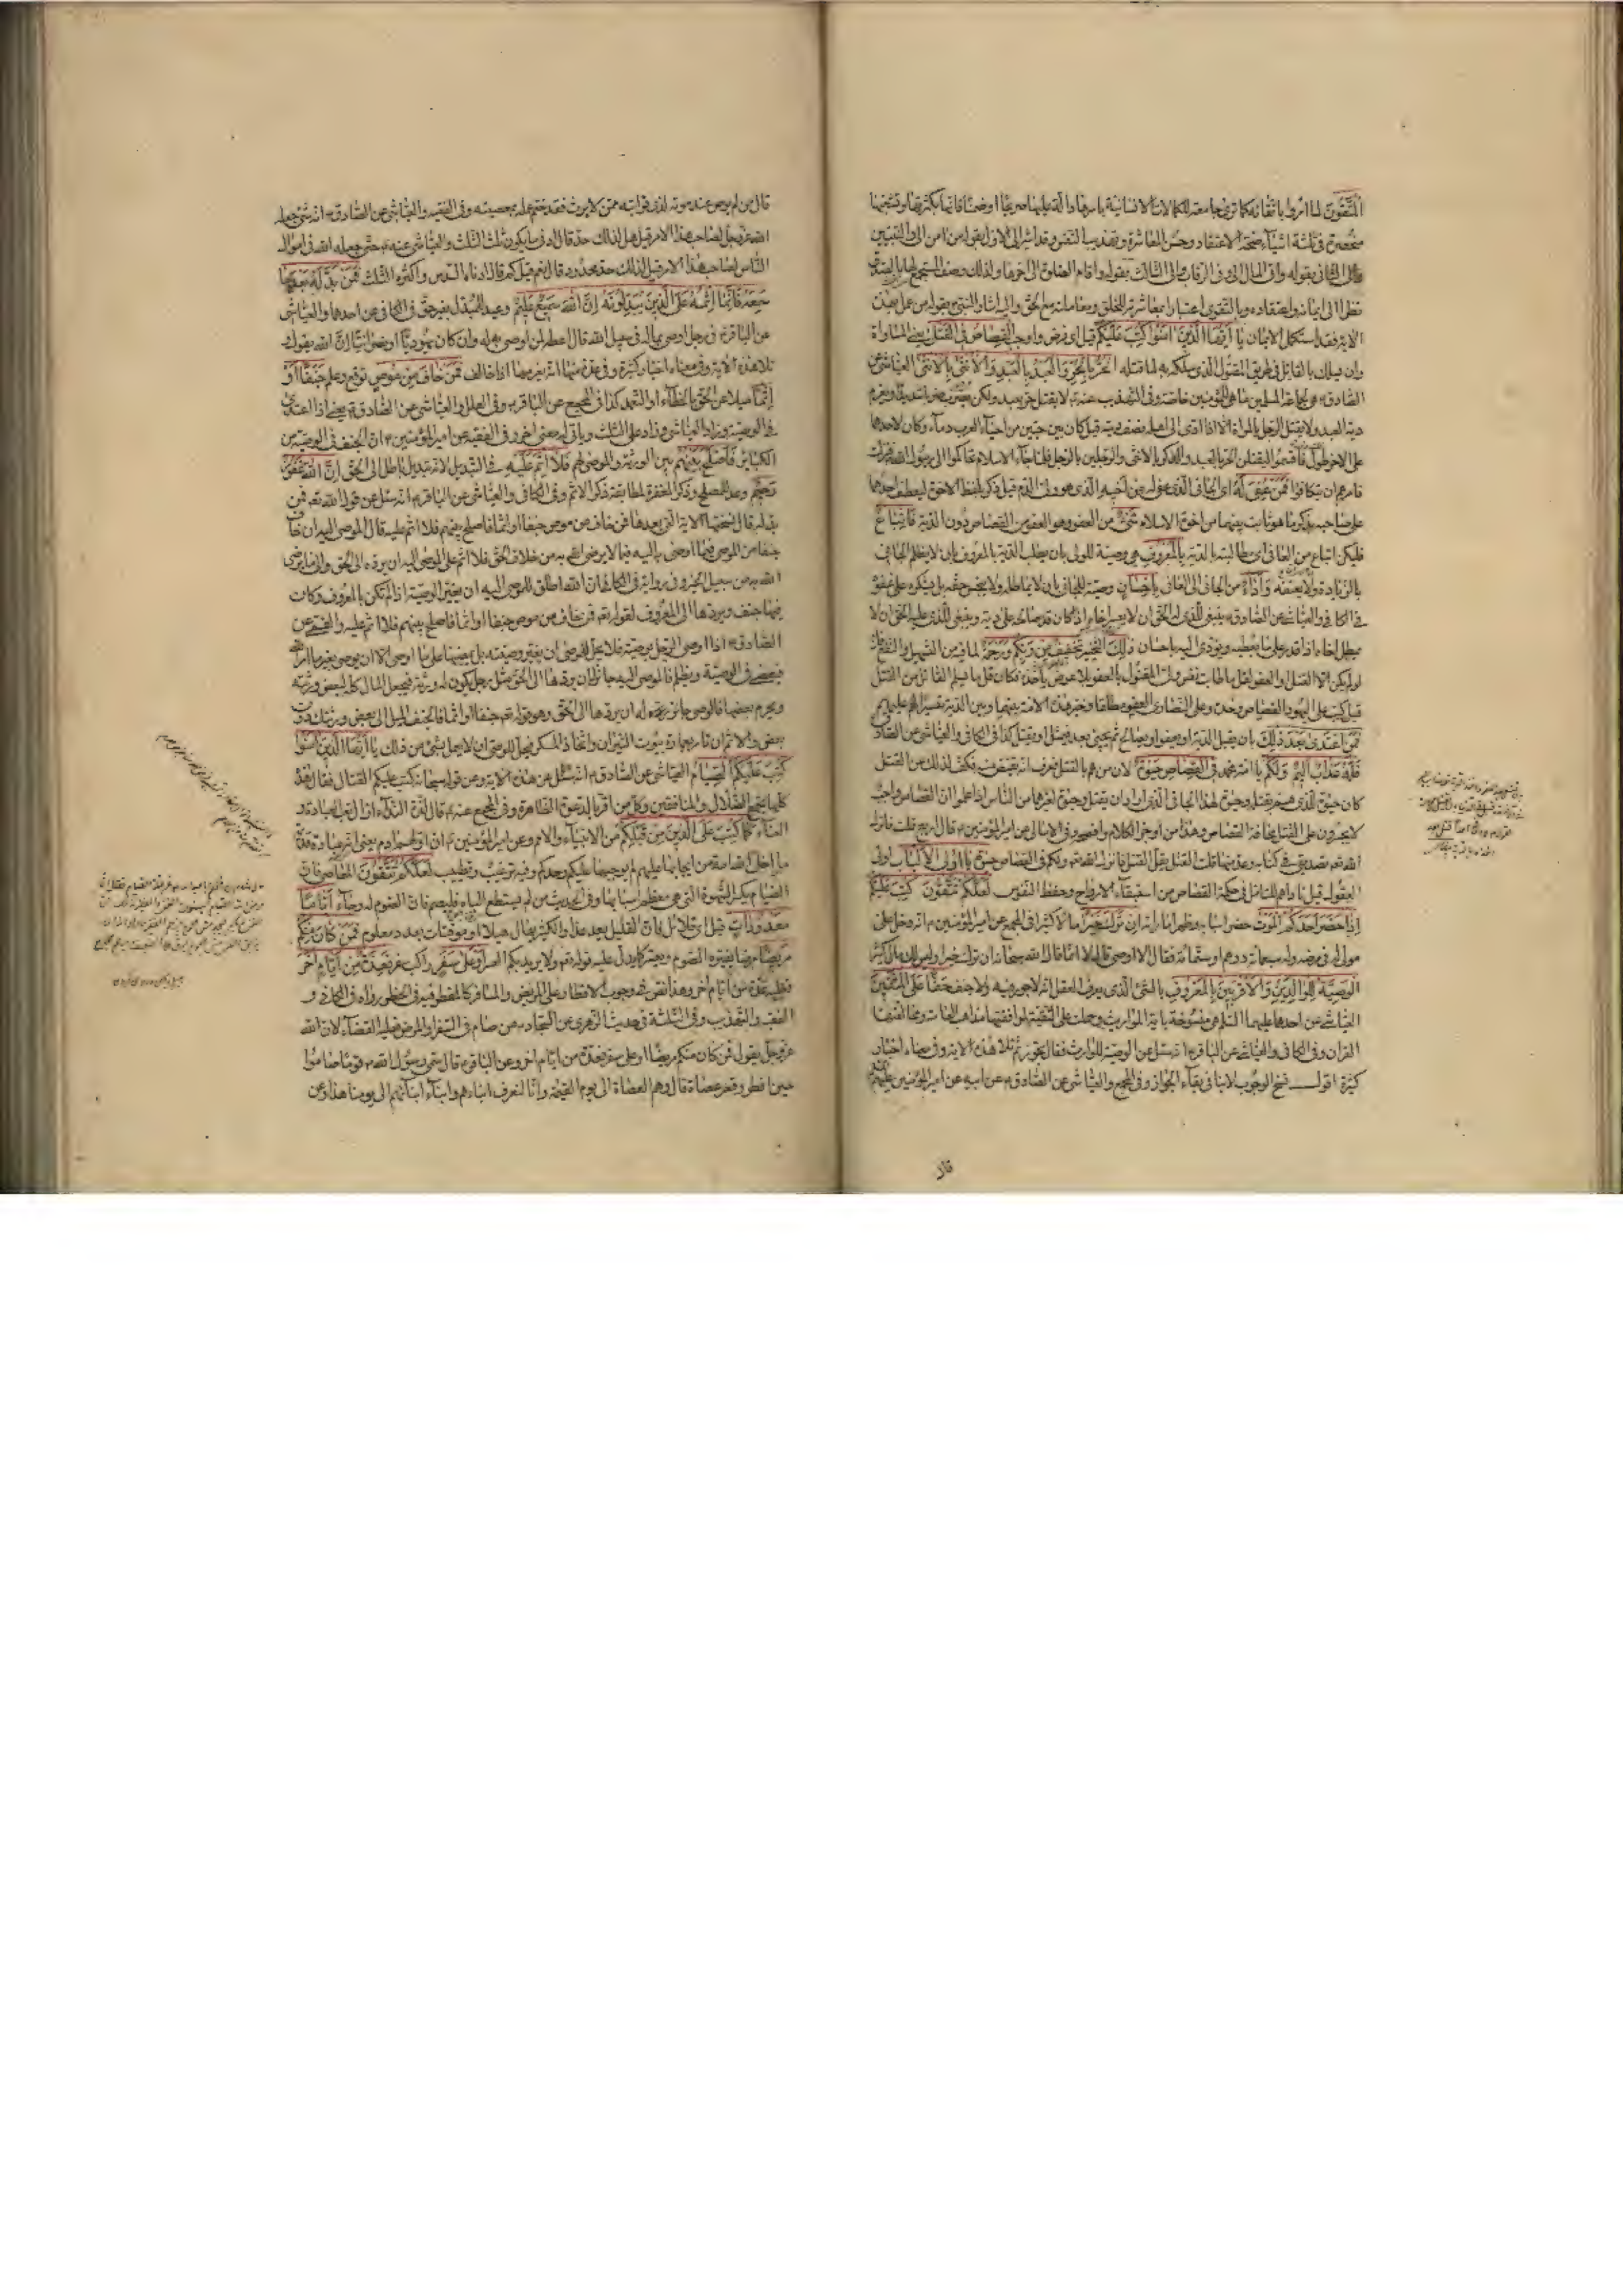 المتقون لما اثروا باتقانه كما ترى جامعة للكمالات الانسانية باسرها دالة عليها صريحا او ضمنا فانها بكثرتها وتشعبها
منحصرة في ثلثة اشياء صحة الاعتقاد وحسن المعاشرة وتهذيب النفس وقد اشير الى الاول بقوله من امن الى والنبيين
والى الثاني بقوله واتى المال الى وفي الرقاب والى الثالث بقوله واقام الصلوة الى اخرها ولذلك وصف المستجمع لها بالصدق
نظرا الى ايمانه واعتقاده وبالتقوى اعتبارا بمعاشرته للخلق ومعاملته مع الحق واليه اشار النبي بقوله من عمل بهذه
الاية فقد استكمل الايمان يا ايها الذين امنوا كتب عليكم قيل اي فرض واوجب القصاص في القتلى يعني المساواة
وان يسلك بالقاتل في طريق المقتول الذي سلكه به لما قتله الحر بالحر والعبد بالعبد والانثى بالانثى العياشي عن
الصادق هي لجماعة المسلمين ما هي للمؤمنين خاصة وفي التهذيب عنه لا يقتل حر بعبد ولكن يضرب ضربا شديدا ويغرم
دية العبد ولا يقتل الرجل بالمراة الا اذا ادى الى اهله نصف ديته قيل كان بين حيين من احياء العرب دماء وكان لاحدهما
على الاخر طول فاقسموا لنقتلن الحر بالعبد والذكر بالانثى والرجلين بالرجل فلما جاء الاسلام تحاكموا الى رسول الله فنزلت
فامرهم ان يتكافوا فمن عفي له اي الجاني الذي عفي له من اخيه الذي هو ولي الدم قيل ذكر بلفظ الاخوة ليعطف احدهما
على صاحبه بذكر ما هو ثابت بينهما من اخوة الاسلام شيء من العفو وهو العفو من القصاص دون الدية فاتباع
فليكن اتباع من العافي اي مطالبته بالدية بالمعروف هي وصية للولي بان يطلب الدية بالمعروف بان لا يظلم الجاني
بالزيادة ولا يعنفه واداء من الجاني الى العافي باحسان وصية للجاني بان لا يماطله ولا يبخس حقه بل يشكره على عفوه
في الكافي والعياشي عن الصادق ينبغي للذي له الحق ان لا يعسر اخاه اذا كان قد صالحه على دية وينبغي للذي عليه الحق ان لا
يمطل اخاه اذا قدر على ما يعطيه ويؤدي اليه باحسان ذلك التخيير تخفيف من ربكم ورحمة لما فيه من التسهيل والنفع فانه
لو لم يكن الا القتل او العفو لقل ما طابت نفس ولي المقتول بالعفو بلا عوض ياخذه فكان قل ما يسلم القاتل من القتل
قيل كتب على اليهود القصاص وحده وعلى النصارى العفو مطلقا وخير هذه الامة بينهما وبين الدية تيسيرا لهم عليهم
فمن اعتدى بعد ذلك بان يقبل الدية او يعفو او يصالح ثم يجيء بعد فيمثل او يقتل كذا في الكافي والعياشي عن الصادق
فله عذاب اليم ولكم يا امة محمد في القصاص حيوة لان من هم بالقتل فعرف انه يقتص منه فكف لذلك عن القتل
كان حيوة للذي هم بقتله وحيوة لهذا الجاني الذي اراد ان يقتل وحيوة لغيرهما من الناس اذا علموا ان القصاص واجب
لا يجسرون على القتل مخافة القصاص وهذا من اوجز الكلام وافصحه وفي الامالي عن امير المؤمنين قال اربع قلت فانزل
الله تعالى تصديقي في كتابه وعد منها قلت القتل يقل القتل فانزل الله تعالى ولكم في القصاص حيوة يا اولي الالباب اولي
العقول قيل ناداهم للتامل في حكمة القصاص من استبقاء الارواح وحفظ النفوس لعلكم تتقون كتب عليكم
اذا حضر احدكم الموت حضر اسبابه وظهر اماراته ان ترك خيرا مالا كثيرا في المجمع عن امير المؤمنين انه دخل على
مولى له في مرضه وله سبعمائة درهم او ستمائة فقال الا اوصي قال لا انما قال الله سبحانه ان ترك خيرا وليس لك مال كثير
الوصية للوالدين والاقربين بالمعروف بالشيء الذي يعرف العقل انه لا جور فيه ولا جنف حقا على المتقين
العياشي عن احدهما عليهما السلام هي منسوخة باية المواريث وحملت على التقية لموافقتها مذاهب العامة ومخالفتها
القران وفي الكافي والعياشي عن الباقر انه سئل عن الوصية للوارث فقال تجوز ثم تلا هذه الاية وفي معناه اخبار
كثيرة اقول نسخ الوجوب لا ينافي بقاء الجواز وفي المجمع والعياشي عن الصادق عن ابيه عن امير المؤمنين عليهم
قال
قال من لم يوص عند موته لذوي قرابته ممن لا يرث فقد ختم عمله بمعصيته وفي الفقيه والعياشي عن الصادق انه شيء جعله
الله عز وجل لصاحب هذا الامر قيل هل لذلك حد قال ادنى ما يكون ثلث الثلث والعياشي عنه حق جعله الله في اموال
الناس لصاحب هذا الامر قيل لذلك حد محدود قال نعم قيل كم قال ادناه السدس واكثره الثلث فمن بدله بعدما
سمعه فانما اثمه على الذين يبدلونه ان الله سميع عليم وعيد للمبدل بغير حق في الكافي عن احدهما والعياشي
عن الباقر في رجل اوصى بماله في سبيل الله قال اعطه لمن اوصى به له وان كان يهوديا او نصرانيا ان الله يقول
تلا هذه الاية وفي معناه اخبار كثيرة وفي عدة منها انه يغرمها اذا خالف فمن خاف من موص توقع وعلم جنفا او
اثما ميلا عن الحق بالخطاء او التعمد كذا في المجمع عن الباقر وفي العلل والعياشي عن الصادق يعني اذا اعتدى
في الوصية وزاد العياشي وزاد على الثلث وياتي له معنى اخر وفي الفقيه عن امير المؤمنين ان الجنف في الوصية من
الكبائر فاصلح بينهم بين الورثة والموصى لهم فلا اثم عليه في التبديل لانه تبديل باطل الى الحق ان الله غفور
رحيم وعد للمصلح وذكر المغفرة لمطابقة ذكر الاثم وفي الكافي والعياشي عن الباقر انه سئل عن قول الله تعالى فمن
بدله قال نسختها الاية التي بعدها فمن خاف من موص جنفا او اثما فاصلح بينهم فلا اثم عليه قال الموصى اليه ان خاف
جنفا من الموصي فيما اوصى به اليه فيما لا يرضى الله به من خلاف الحق فلا اثم على الموصى اليه ان يرده الى الحق والى ما يرضى
الله به من سبيل الخير وفي رواية في الكافي ان الله اطلق للموصى اليه ان يغير الوصية اذا لم تكن بالمعروف وكان
فيها جنف ويردها الى المعروف لقوله تعالى فمن خاف من موص جنفا او اثما فاصلح بينهم فلا اثم عليه والقمي عن
الصادق اذا اوصى الرجل بوصية فلا يحل للوصي ان يغير وصيته بل يمضيها على ما اوصى الا ان يوصي بغير ما امر الله
فيعصي في الوصية ويظلم فالموصى اليه جائز له ان يردها الى الحق مثل رجل يكون له ورثة فيجعل المال كله لبعض ورثته
ويحرم بعضها فالوصي جائز له ان يردها الى الحق وهو قوله تعالى جنفا او اثما فالجنف الميل الى بعض ورثتك دون
بعض والاثم ان تامر بعمارة بيوت النيران واتخاذ المسكر فيحل للوصي ان لا يعمل بشيء من ذلك يا ايها الذين امنوا
كتب عليكم الصيام العياشي عن الصادق انه سئل عن هذه الاية وعن قوله سبحانه كتب عليكم القتال فقال هذه
كلها يجمع الضلال والمنافقين وكل من اقر بالدعوة الظاهرة وفي المجمع عنه قال لذة النداء ازال تعب العبادة و
العناء كما كتب على الذين من قبلكم من الانبياء والامم وعن امير المؤمنين ان اولهم ادم يعني انه عبادة قديمة
ما اخلى الله امة من ايجابها عليهم لم يوجبها عليكم وحدكم وفيه ترغيب وتطييب لعلكم تتقون المعاصي فان
الصيام يكسر الشهوة التي هي معظم اسبابها وفي الحديث من لم يستطع الباه فليصم فان الصوم له وجاء اياما
معدودات قيل اي قلائل فان القليل يعد عدا والكثير يهال هيلا او موقتات بعدد معلوم فمن كان منكم
مريضا مرضا يضره الصوم ويعسر كما دل عليه قوله تعالى ولا يريد بكم العسر او على سفر راكب سفر فعدة من ايام اخر
فعليه عدة من ايام اخر وهذا نص في وجوب الافطار على المريض والمسافر كالمفطر فيه في الحضر رواه في الكافي و
الفقيه والتهذيب وفي الثلثة في حديث الزهري عن السجاد من صام في السفر او المرض فعليه القضاء لان الله
عز وجل يقول فمن كان منكم مريضا او على سفر فعدة من ايام اخر وعن الباقر قال سمى رسول الله قوما صاموا
حين افطر وقصر عصاة قال وهم العصاة الى يوم القيمة وانا لنعرف ابناءهم وابناء ابنائهم الى يومنا هذا وعن